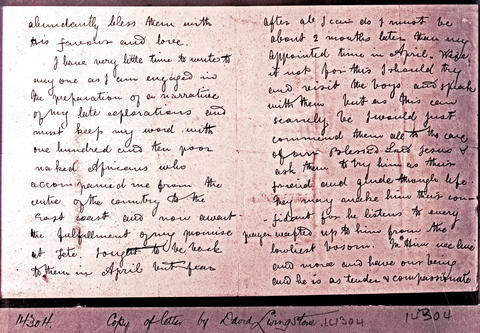 abundantly bless them with
his favour and love.
I have very little time to write to
any one as I am engaged in
the preparation of a narrative
of my late explorations and
must keep my word with
one hundred and ten poor
naked Africans who
accompanied me from the
centre of the country to the
East coast and now await
the fulfillment of my promise
at Tete. I ought to be back
to them in April but fear
after all I can do I must be
about 2 months later than my
appointed time in April. Were
it not for this I should try
and visit the boys and speak
with them but as this can
scarcely be I would just
commend them all to the care
of our Blessed Lord Jesus &
ask them to try him as their
friend and guide through life
They may make him their con-
fidant for he listens to every
prayer wafted up to him from the
lowliest bosom. In Him we live
and move and have our being
and he is as tender & compassionate
14304. Copy of letter by David Livingstone. 14304 14304